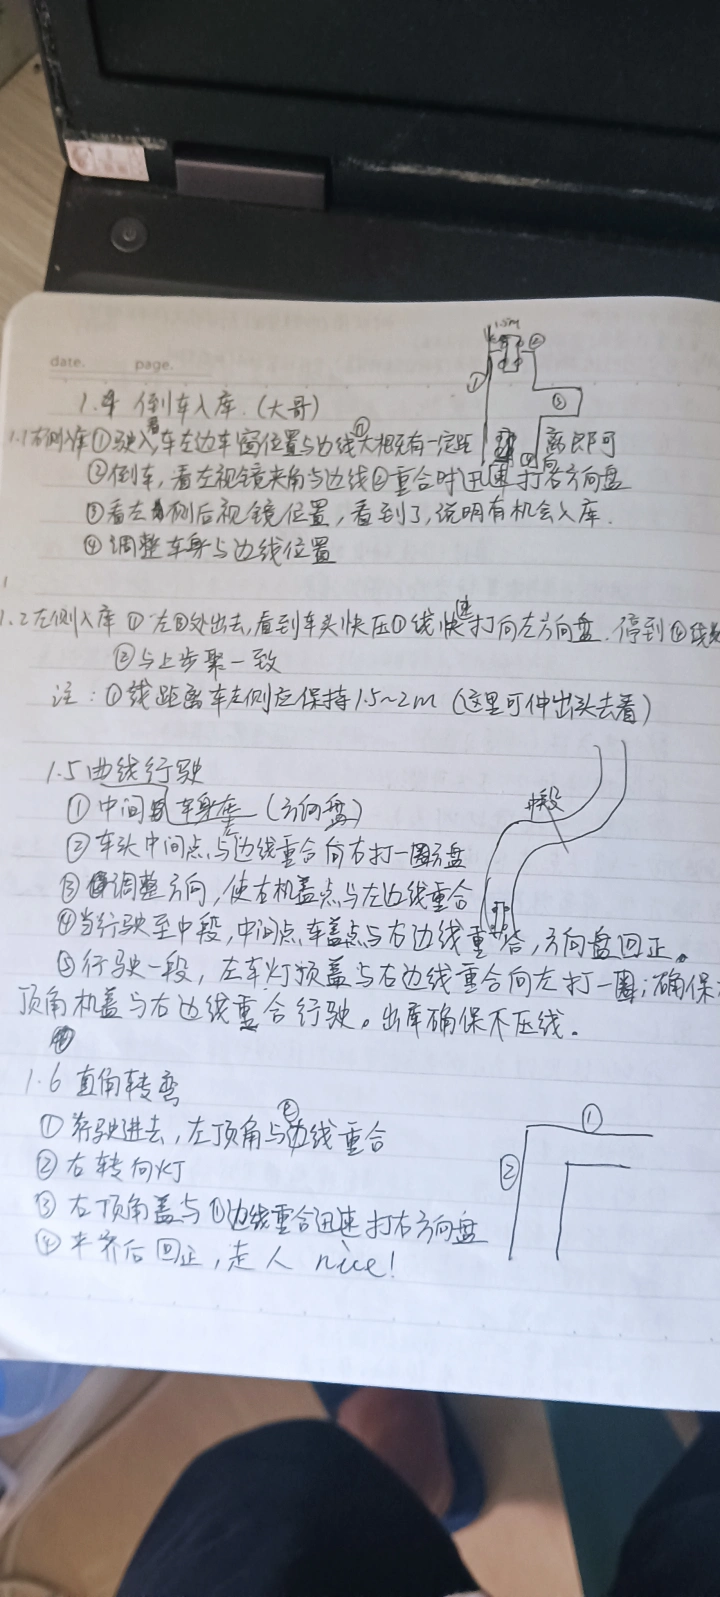 date. page.
1.4 倒车入库.(大哥)
1.5M
② ① ③
1.1右侧入库①驶入,车左边车窗位置与边线①大概有一定距离即可
②倒车,看左视镜夹角与边线②重合时迅速打右方向盘
③看左侧后视镜位置,看到了,说明有机会入库.
④调整车身与边线位置
1.2左侧入库 ① 左③处出去,看到车头快压①线快速打向左方向盘.停到②线
②与上步聚一致
注:①线距离车左侧应保持1.5~2m(这里可伸出头去看)
1.5曲线行驶
①中间 车身左(方向盘)
中段
②车头中间点与边线重合向右打一圈方盘
③调整方向,使右机盖点与左边线重合
④当行驶至中段,中间点车盖点与右边线重合,方向盘回正。
⑤行驶一段,左车灯顶盖与右边线重合向左打一圈;确保
顶角机盖与右边线重合行驶。出库确保不压线.
1.6 直角转弯
①行驶进去,左顶角与②边线重合
① ②
②右转向灯
③右顶角盖与①边线重合迅速打右方向盘
④平齐后回正,走人 nice!